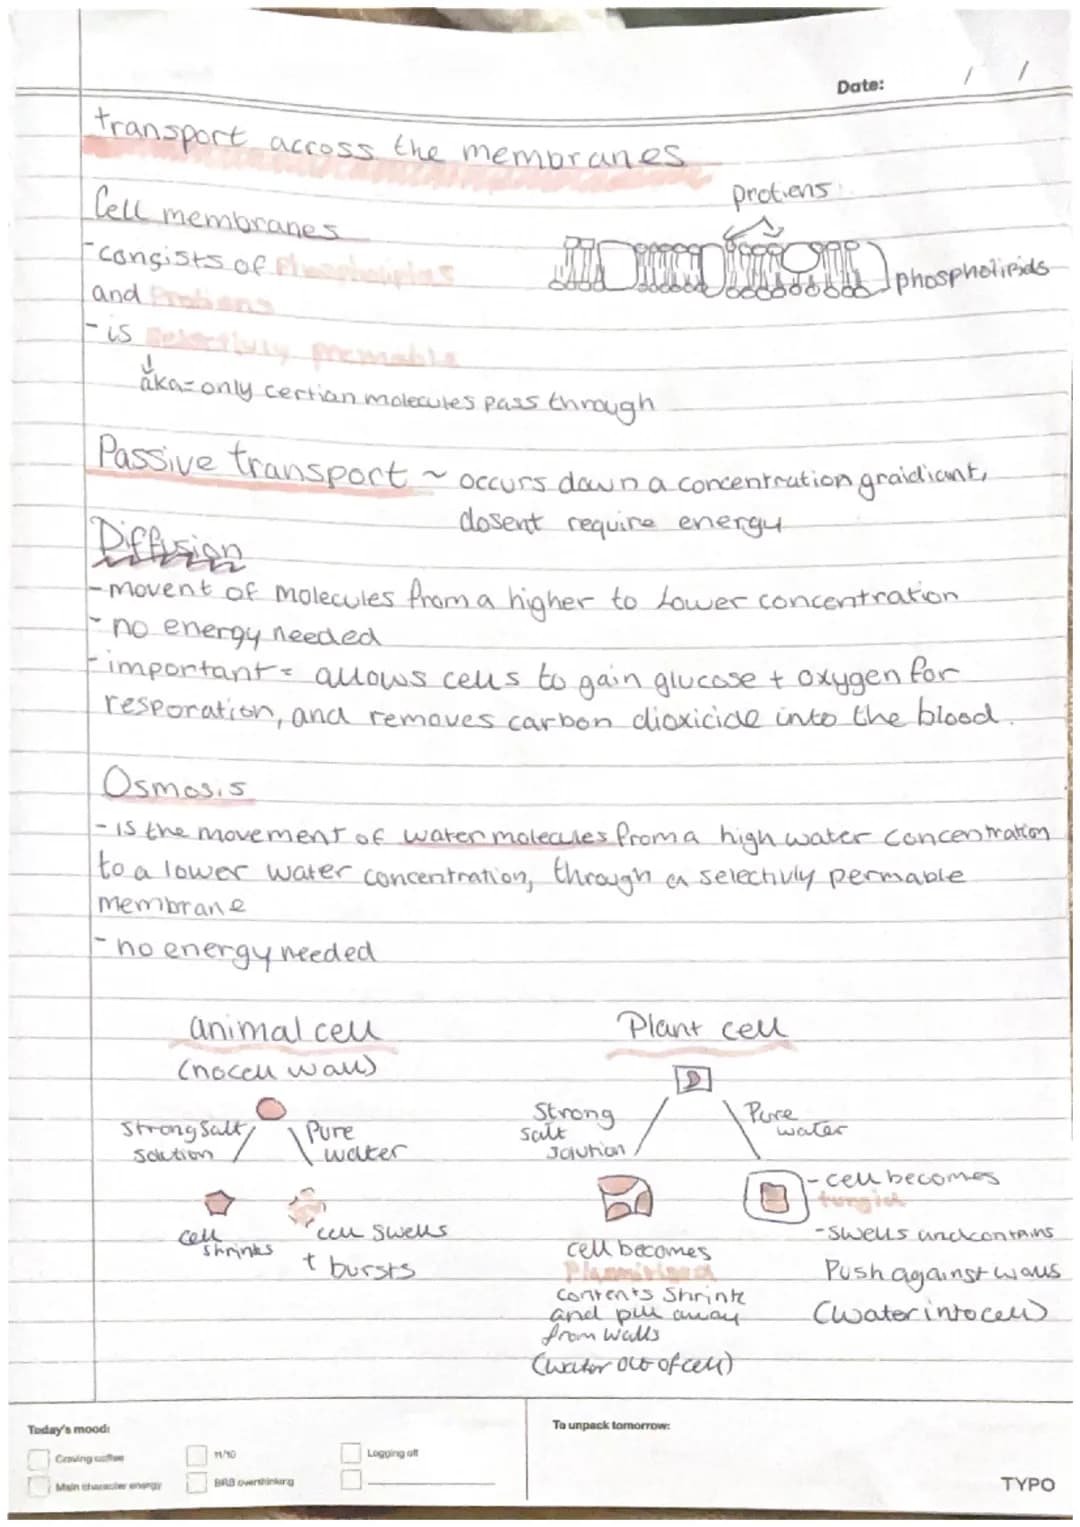 Date: / /
transport across the membranes
protiens
Cell membranes
-consists of Phospholipids
phospholipids
and Protiens
-is selectivly premable
aka= only certian molecules pass through
Passive transport ~ occurs down a concentration graidiant,
dosent require energy
Diffusion
-movent of molecules from a higher to lower concentration
-no energy needed
-important= allows cells to gain glucose + oxygen for
resporation, and removes carbon dioxicide into the blood.
Osmosis
-is the movement of water molecules from a high water concentration
to a lower water concentration, through a selectivly permable
membrane
-no energy needed
animal cell
Plant cell
(no cell wall)
Strong salt
solution
Pure
water
Strong
salt
solution
Pure
water
cell
shrinks
cell swells
+ bursts
cell becomes
contents shrink
and pull away
from walls
(water out of cell)
-cell becomes
turgid
-swells and contains
Push against walls
(water into cell)
Today's mood:
Craving coffee
11/10
Logging off
Main character energy
BRB overthinking
To unpack tomorrow:
TYPO